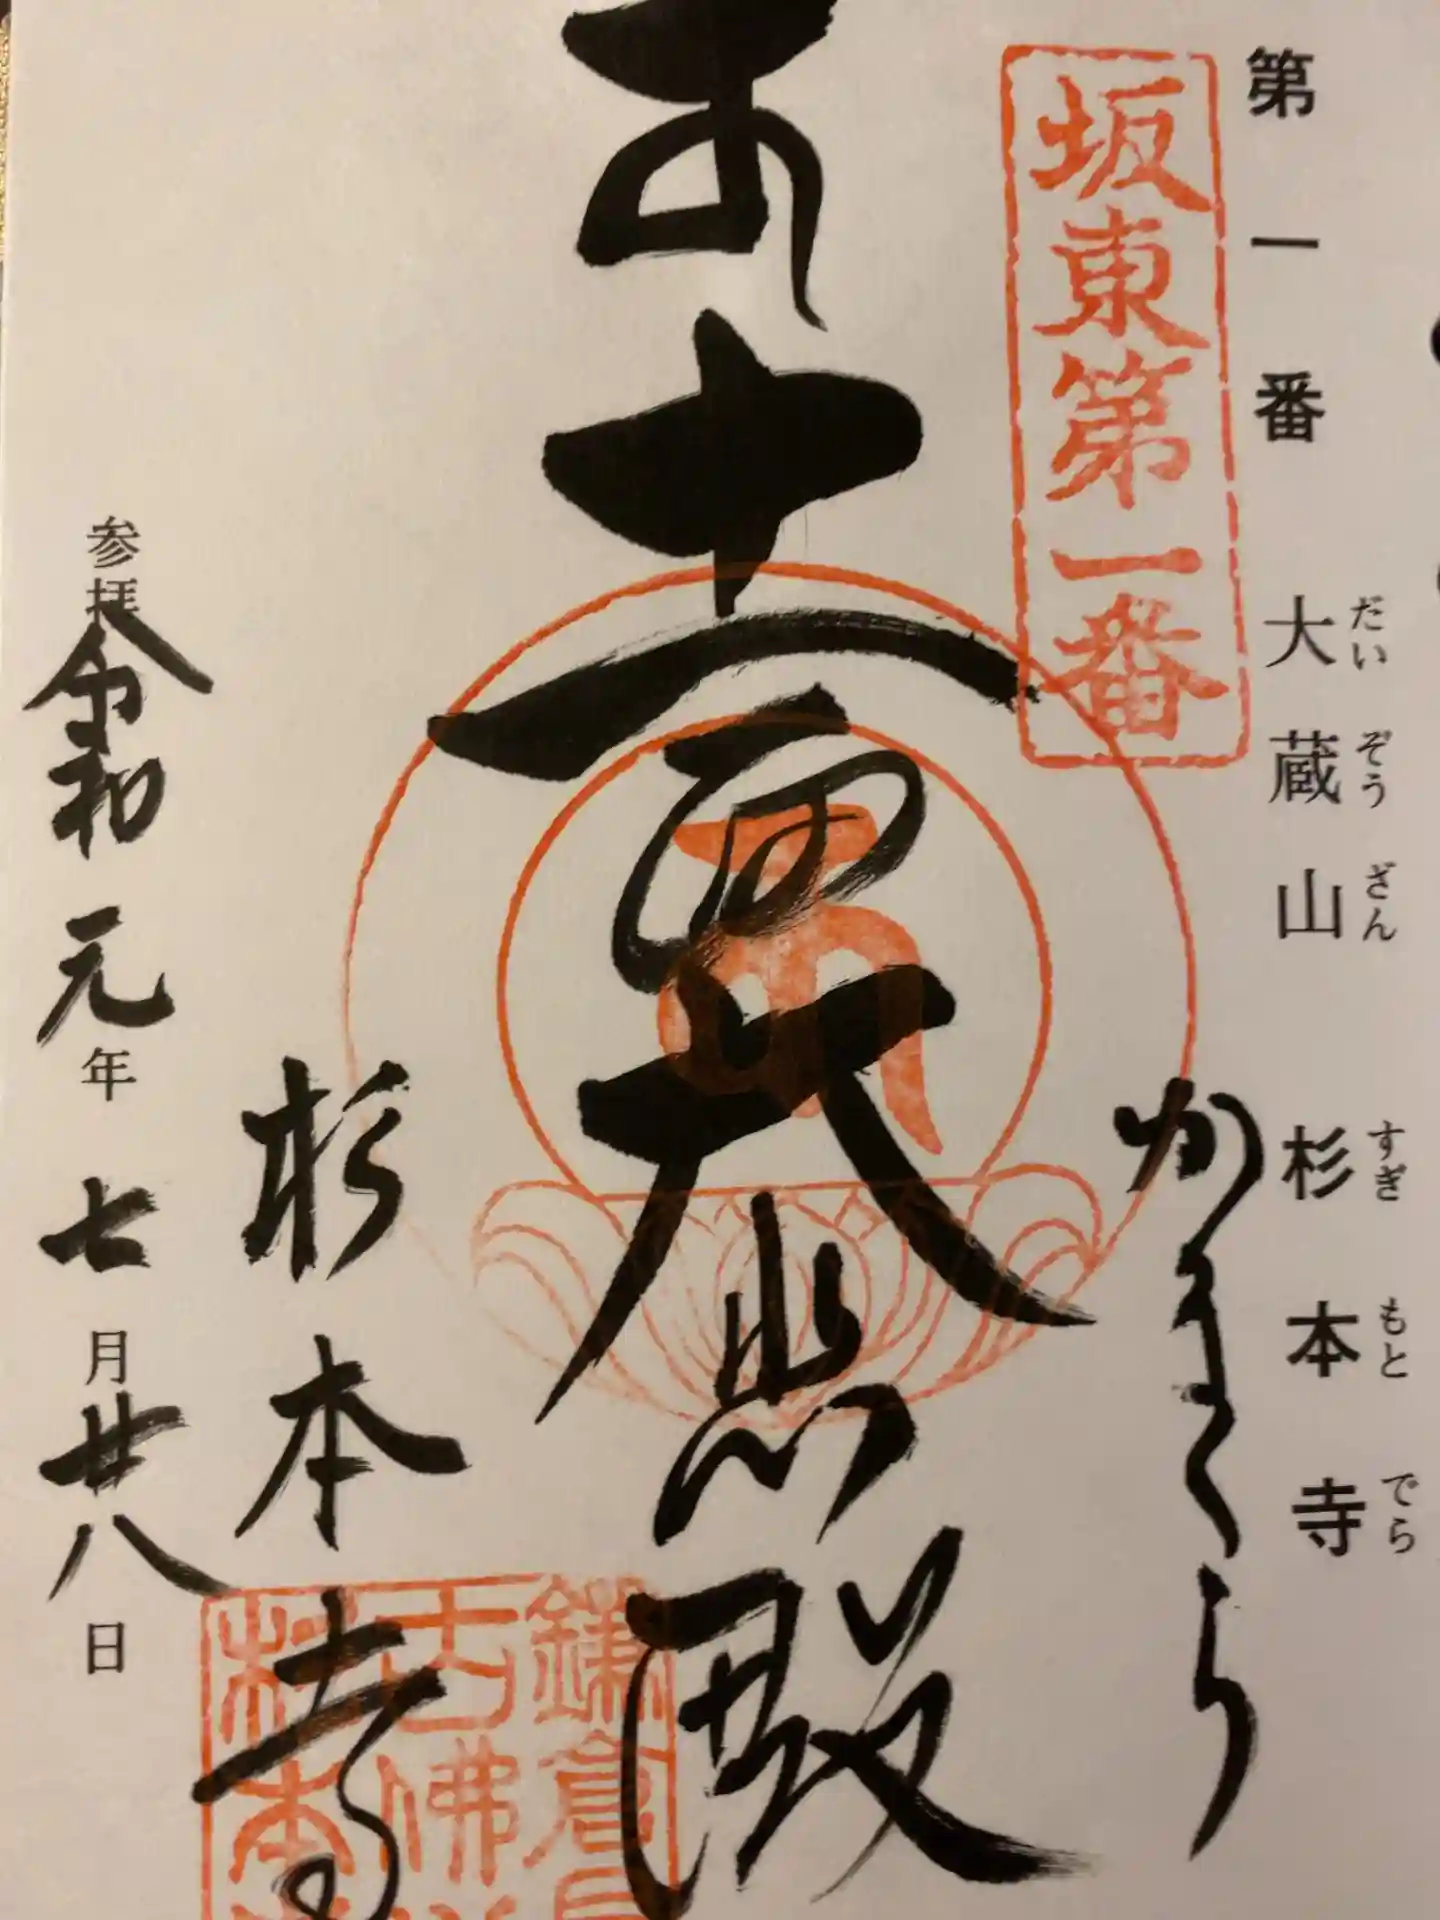 第一番 大蔵山 杉本寺
だいぞうざん すぎもとでら
坂東第一番
かまくら
十一面大悲殿
杉本寺
鎌倉
古佛
杉本
参拝
令和元年七月廿八日